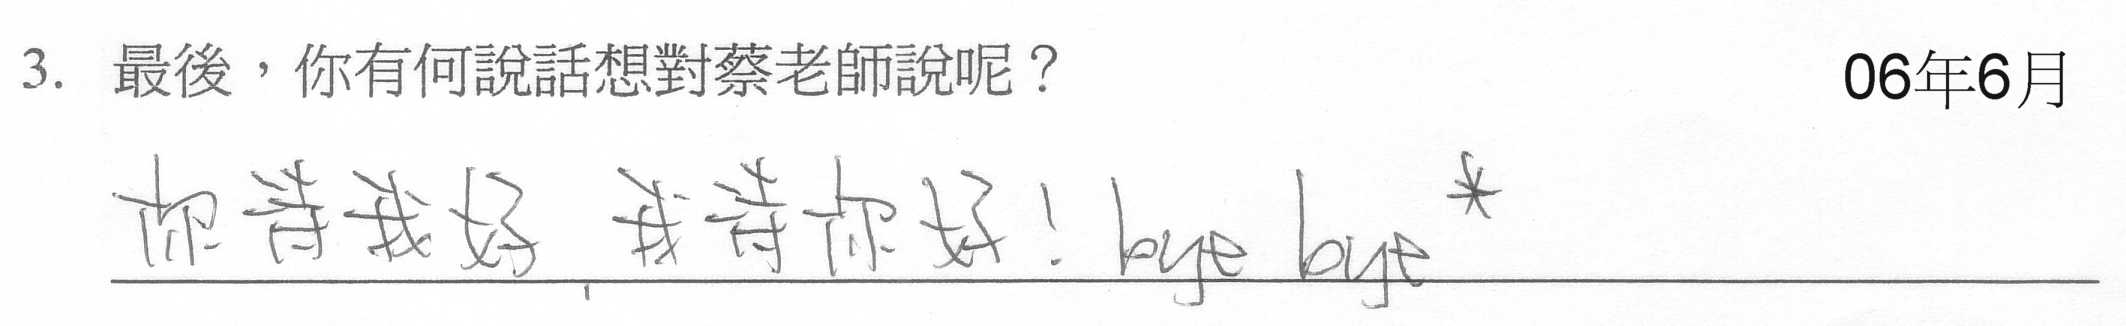 3. 最後，你有何說話想對蔡老師說呢？ 06年6月
你待我好，我待你好！bye bye*